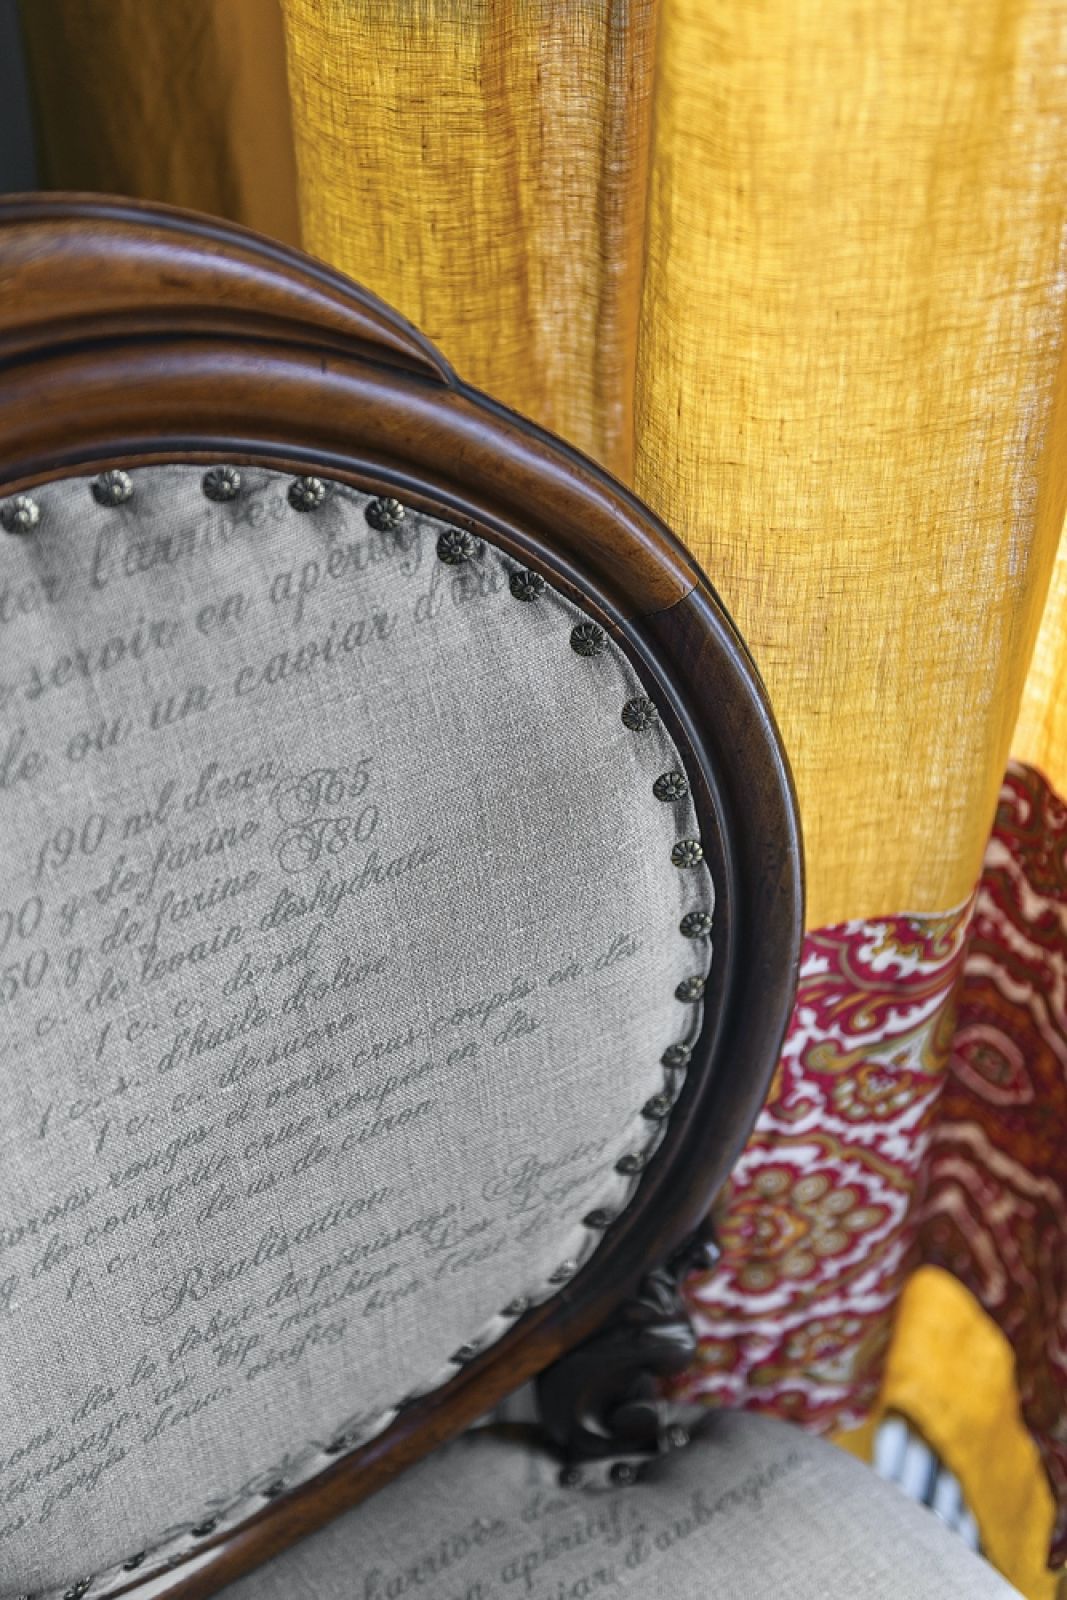 l'arrivée
servir en apéritif
ou un caviar d'au
190 ml d'eau
00 g de farine T65
50 g de farine T80
c. de levain déshydraté
1 c. c. de sel
1 c. s. d'huile d'olive
1 c. c. de sucre
rouges et verts crus coupés en dés
g de courgette crue coupée en dés
1 c. c. de jus de citron
Réalisation
dès le début du pétrissage.
au bip machine Les
gorgés d'eau, vérifiez bien l'état de
l'arrivée de
en apéritif,
caviar d'aubergine